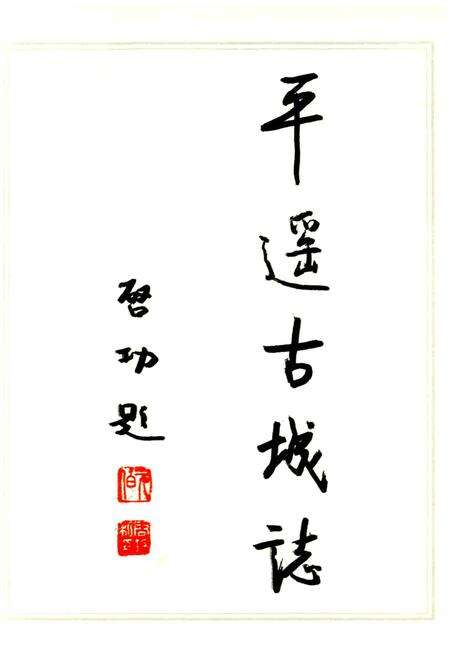 平遥古城誌
启功题
元白